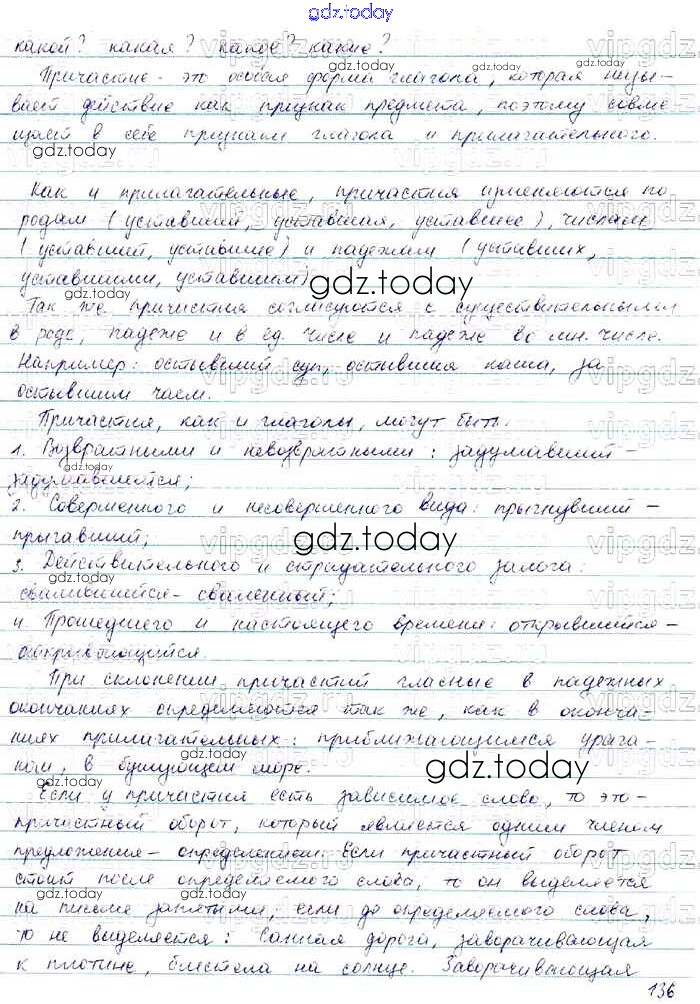 gdz.today
какой? какая? какое? какие?
Причастие - это особая форма глагола, которая назы-
вает действие как признак предмета, поэтому совме
щает в себе признаки глагола и прилагательного.
gdz.today
Как и прилагательные, причастия изменяются по
родам (уставший, уставшая, уставшее), числам
(уставший, уставшие) и падежам (уставших,
уставшими, уставшим)
gdz.today
Так же причастия согласуются с существительными
в роде, падеже и в ед. числе и падеже во мн. числе.
Например: остывший суп, остывшая каша, за
остывшим чаем.
Причастия, как и глаголы, могут быть.
1. Возвратными и невозвратными: задумавший -
gdz.today
задумавшийся;
2. Совершенного и несовершенного вида: прыгнувший -
прыгавший;
gdz.today
3. Действительного и страдательного залога:
gdz.today
свалившийся - сваленный;
4. Прошедшего и настоящего времени: открывшийся -
открывающийся.
При склонении причастий гласные в падежных
окончаниях определяются так же, как в оконча-
ниях прилагательных: приближающимся урага-
ном, в бушующем море.
gdz.today
Если у причастия есть зависимое слово, то это -
причастный оборот, который является одним членом
предложения - определением. Если причастный оборот
стоит после определяемого слова, то он выделяется
на письме запятыми, если до определяемого слова,
gdz.today
то не выделяется: Санная дорога, заворачивающая
к плотине, блестела на солнце. Заворачивающая
136